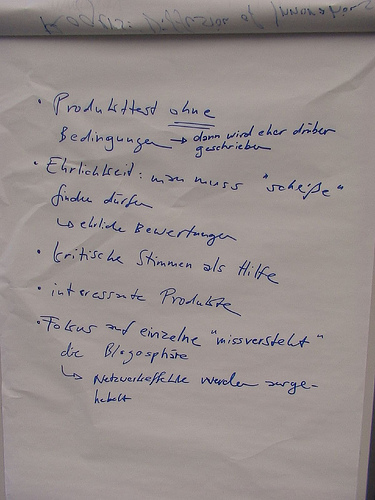 Diffusion of Innovation
• Produkttest ohne
Bedingungen → dann wird eher drüber
geschrieben
• Ehrlichkeit: man muss "scheiße"
finden dürfen
↳ ehrliche Bewertungen
• kritische Stimmen als Hilfe
• interessante Produkte
• Fokus auf einzelne "missversteht"
die Blogosphäre
↳ Netzwerkeffekte werden ausge-
hebelt